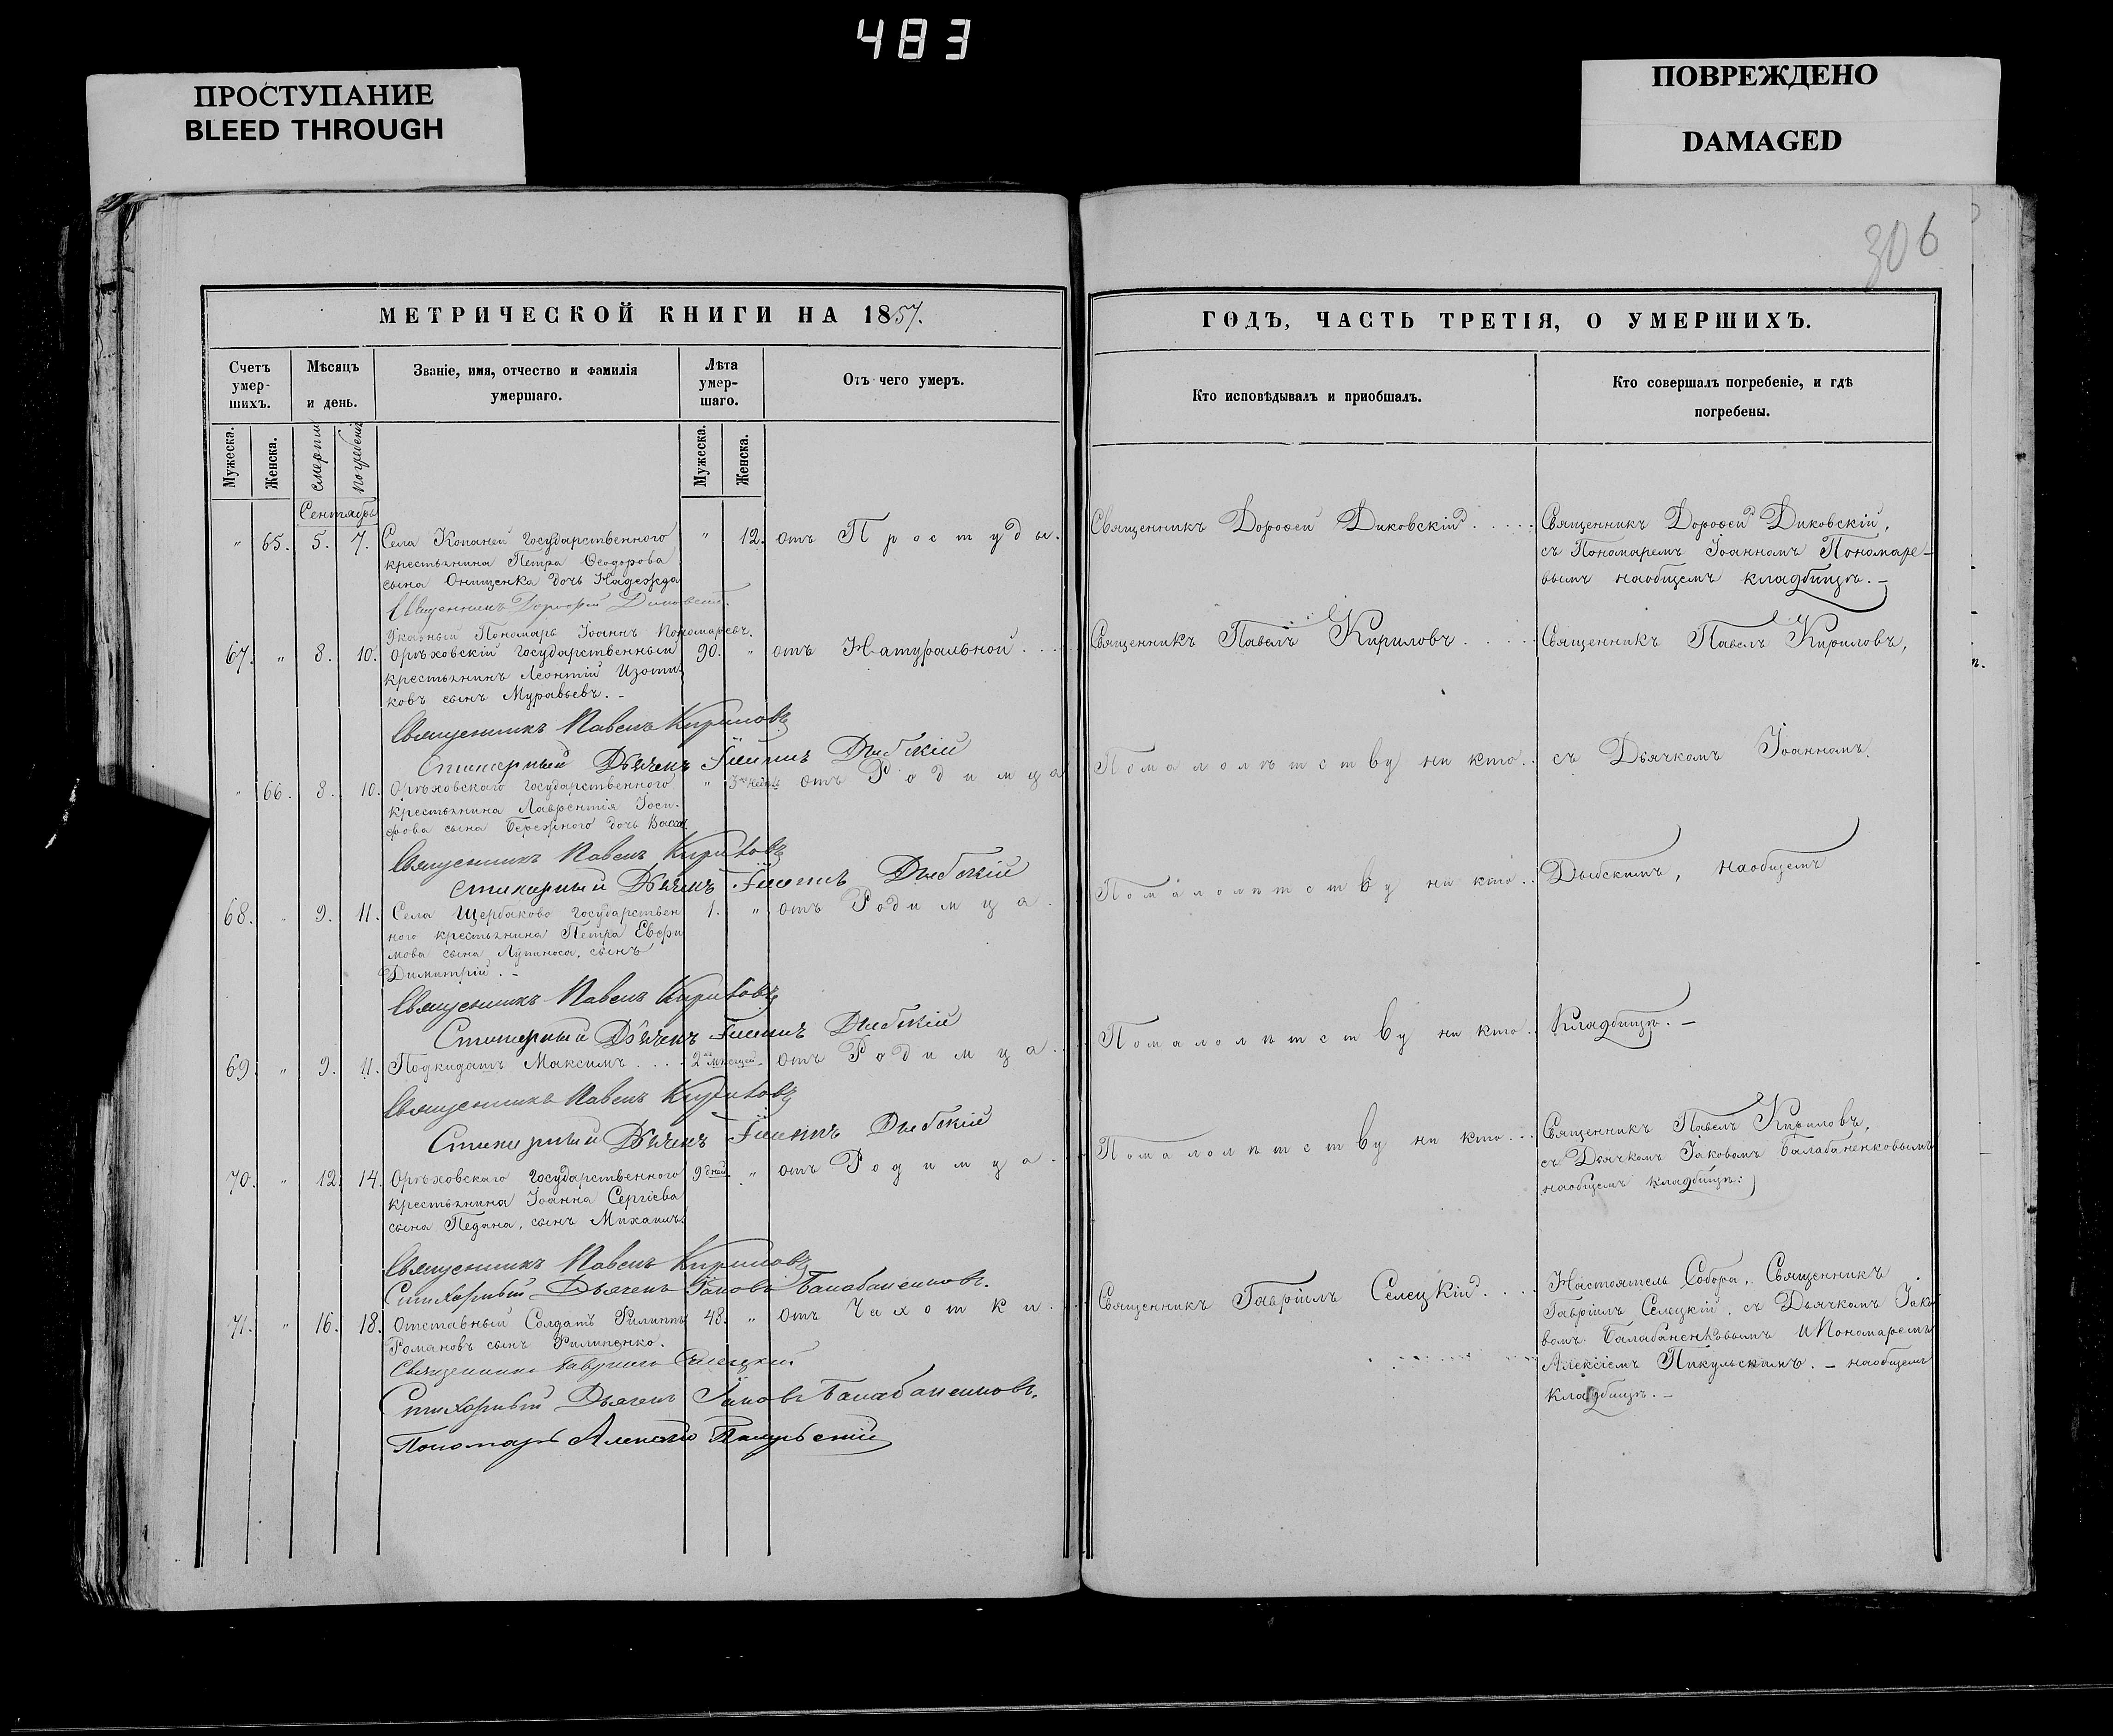 483
ПРОСТУПАНИЕ
BLEED THROUGH
ПОВРЕЖДЕНО
DAMAGED
306
МЕТРИЧЕСКОЙ КНИГИ НА 1857.
ГОДЪ, ЧАСТЬ ТРЕТІЯ, О УМЕРШИХЪ.
Счетъ умер- шихъ.
Мѣсяцъ и день.
Званіе, имя, отчество и фамилія умершаго.
Лѣта умер- шаго.
Отъ чего умеръ.
Кто исповѣдывалъ и пріобщалъ.
Кто совершалъ погребеніе, и гдѣ погребены.
Мужеска. Женска. смерти погребенія Мужеска. Женска.
Сентябрь
" 65. 5. 7. Села Копаней Государственного " 12. отъ Простуды. Священникъ Дорофей Диковскій Священникъ Дорофей Диковскій,
крестьянина Петра Феодорова съ Пономаремъ Іоанномъ Пономаре-
сына Онищенка дочь Надежда вымъ наобщемъ кладбищѣ. –
Священникъ Дорофей Диковскій.
Указный Пономарь Іоаннъ Пономаревъ.
67. " 8. 10. Орѣховскій Государственный 90. " отъ Натуральной Священникъ Павелъ Кириловъ Священникъ Павелъ Кириловъ,
крестьянинъ Леонтій Изоти-
ковъ сынъ Муравьевъ. –
Священникъ Павелъ Кириловъ
Стихарный Дьячекъ Іоаннъ Дыбскій
" 66. 8. 10. Орѣховскаго Государственного " 3 отъ Родимца Помалолѣтству ни кто. съ Дьячкомъ Іоанномъ
крестьянина Лаврентія Іоси-
фова сына Бережного дочь Васса.
Священникъ Павелъ Кириловъ
стихарный Дьячекъ Іоаннъ Дыбскій
68. " 9. 11. Села Щербаково Государствен 1. " отъ Родимца. Помалолѣтству ни кто. Дыбскимъ, наобщемъ
ного крестьянина Петра Евфи
мова сына Лупиноса, сынъ
Димитрій. –
Священникъ Павелъ Кириловъ
Стихарный Дьячекъ Іоаннъ Дыбскій
69. " 9. 11. Подкидатъ Максимъ 2 мѣсяцей отъ Родимца Помалолѣтству ни кто. Кладбищѣ. –
Священникъ Павелъ Кириловъ
Стихарный Дьячекъ Іоаннъ Дыбскій
70. " 12. 14. Орѣховскаго Государственного 9 дней " отъ Родимца. Помалолѣтству ни кто. Священникъ Павелъ Кириловъ,
крестьянина Іоанна Сергіева съ Дьячкомъ Іаковомъ Балабаненковымъ
сына Педана, сынъ Михаилъ. наобщемъ кладбищѣ.
Священникъ Павелъ Кириловъ
Стихарный Дьячекъ Іаковъ Балабаненковъ.
71. " 16. 18. Отставный Солдатъ Филиппъ 48. " отъ Чахотки. Священникъ Гавріилъ Селецкій Настоятель Собора, Священникъ
Романовъ сынъ Филипенко. Гавріилъ Селецкій, съ Дьячкомъ Іако
Священникъ Гавріилъ Селецкій вомъ Балабаненковымъ и Пономаремъ
Стихарный Дьячекъ Іаковъ Балабаненковъ. Алексіемъ Пикульскимъ. – наобщемъ
Пономарь Алексій Пикульскій кладбищѣ. –